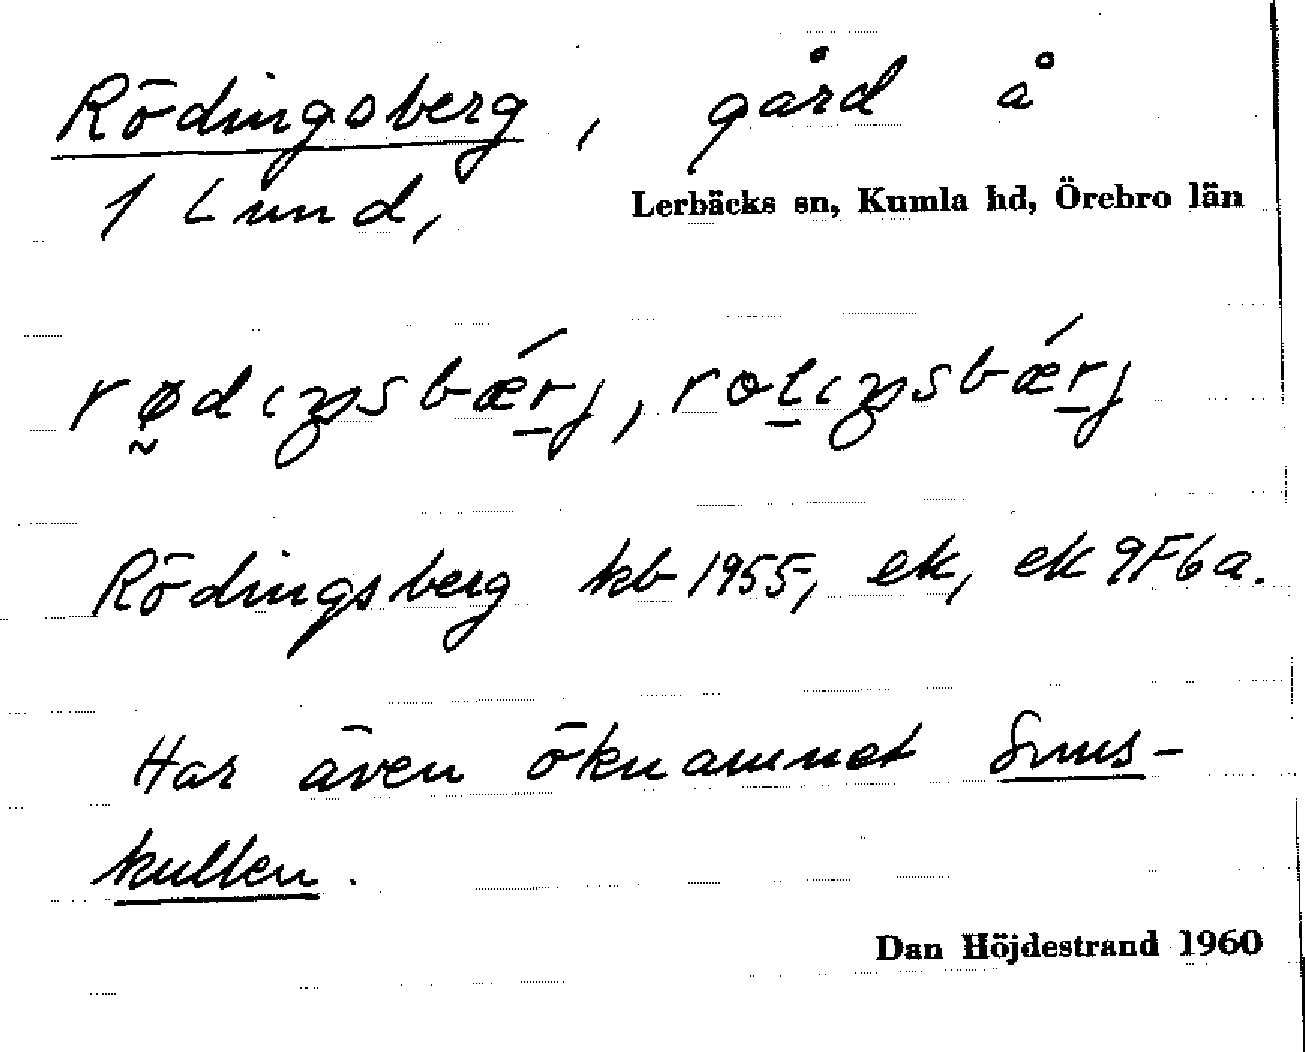 Rödingsberg, gård å
1 Lund,
Lerbäcks sn, Kumla hd, Örebro län
rø̰dıŋsbǽr̠j, rol̠ıŋsbǽr̠j
Rödingsberg kb 1955, ek, ek 9F6a.
Har även öknamnet Snus-
kullen.
Dan Höjdestrand 1960